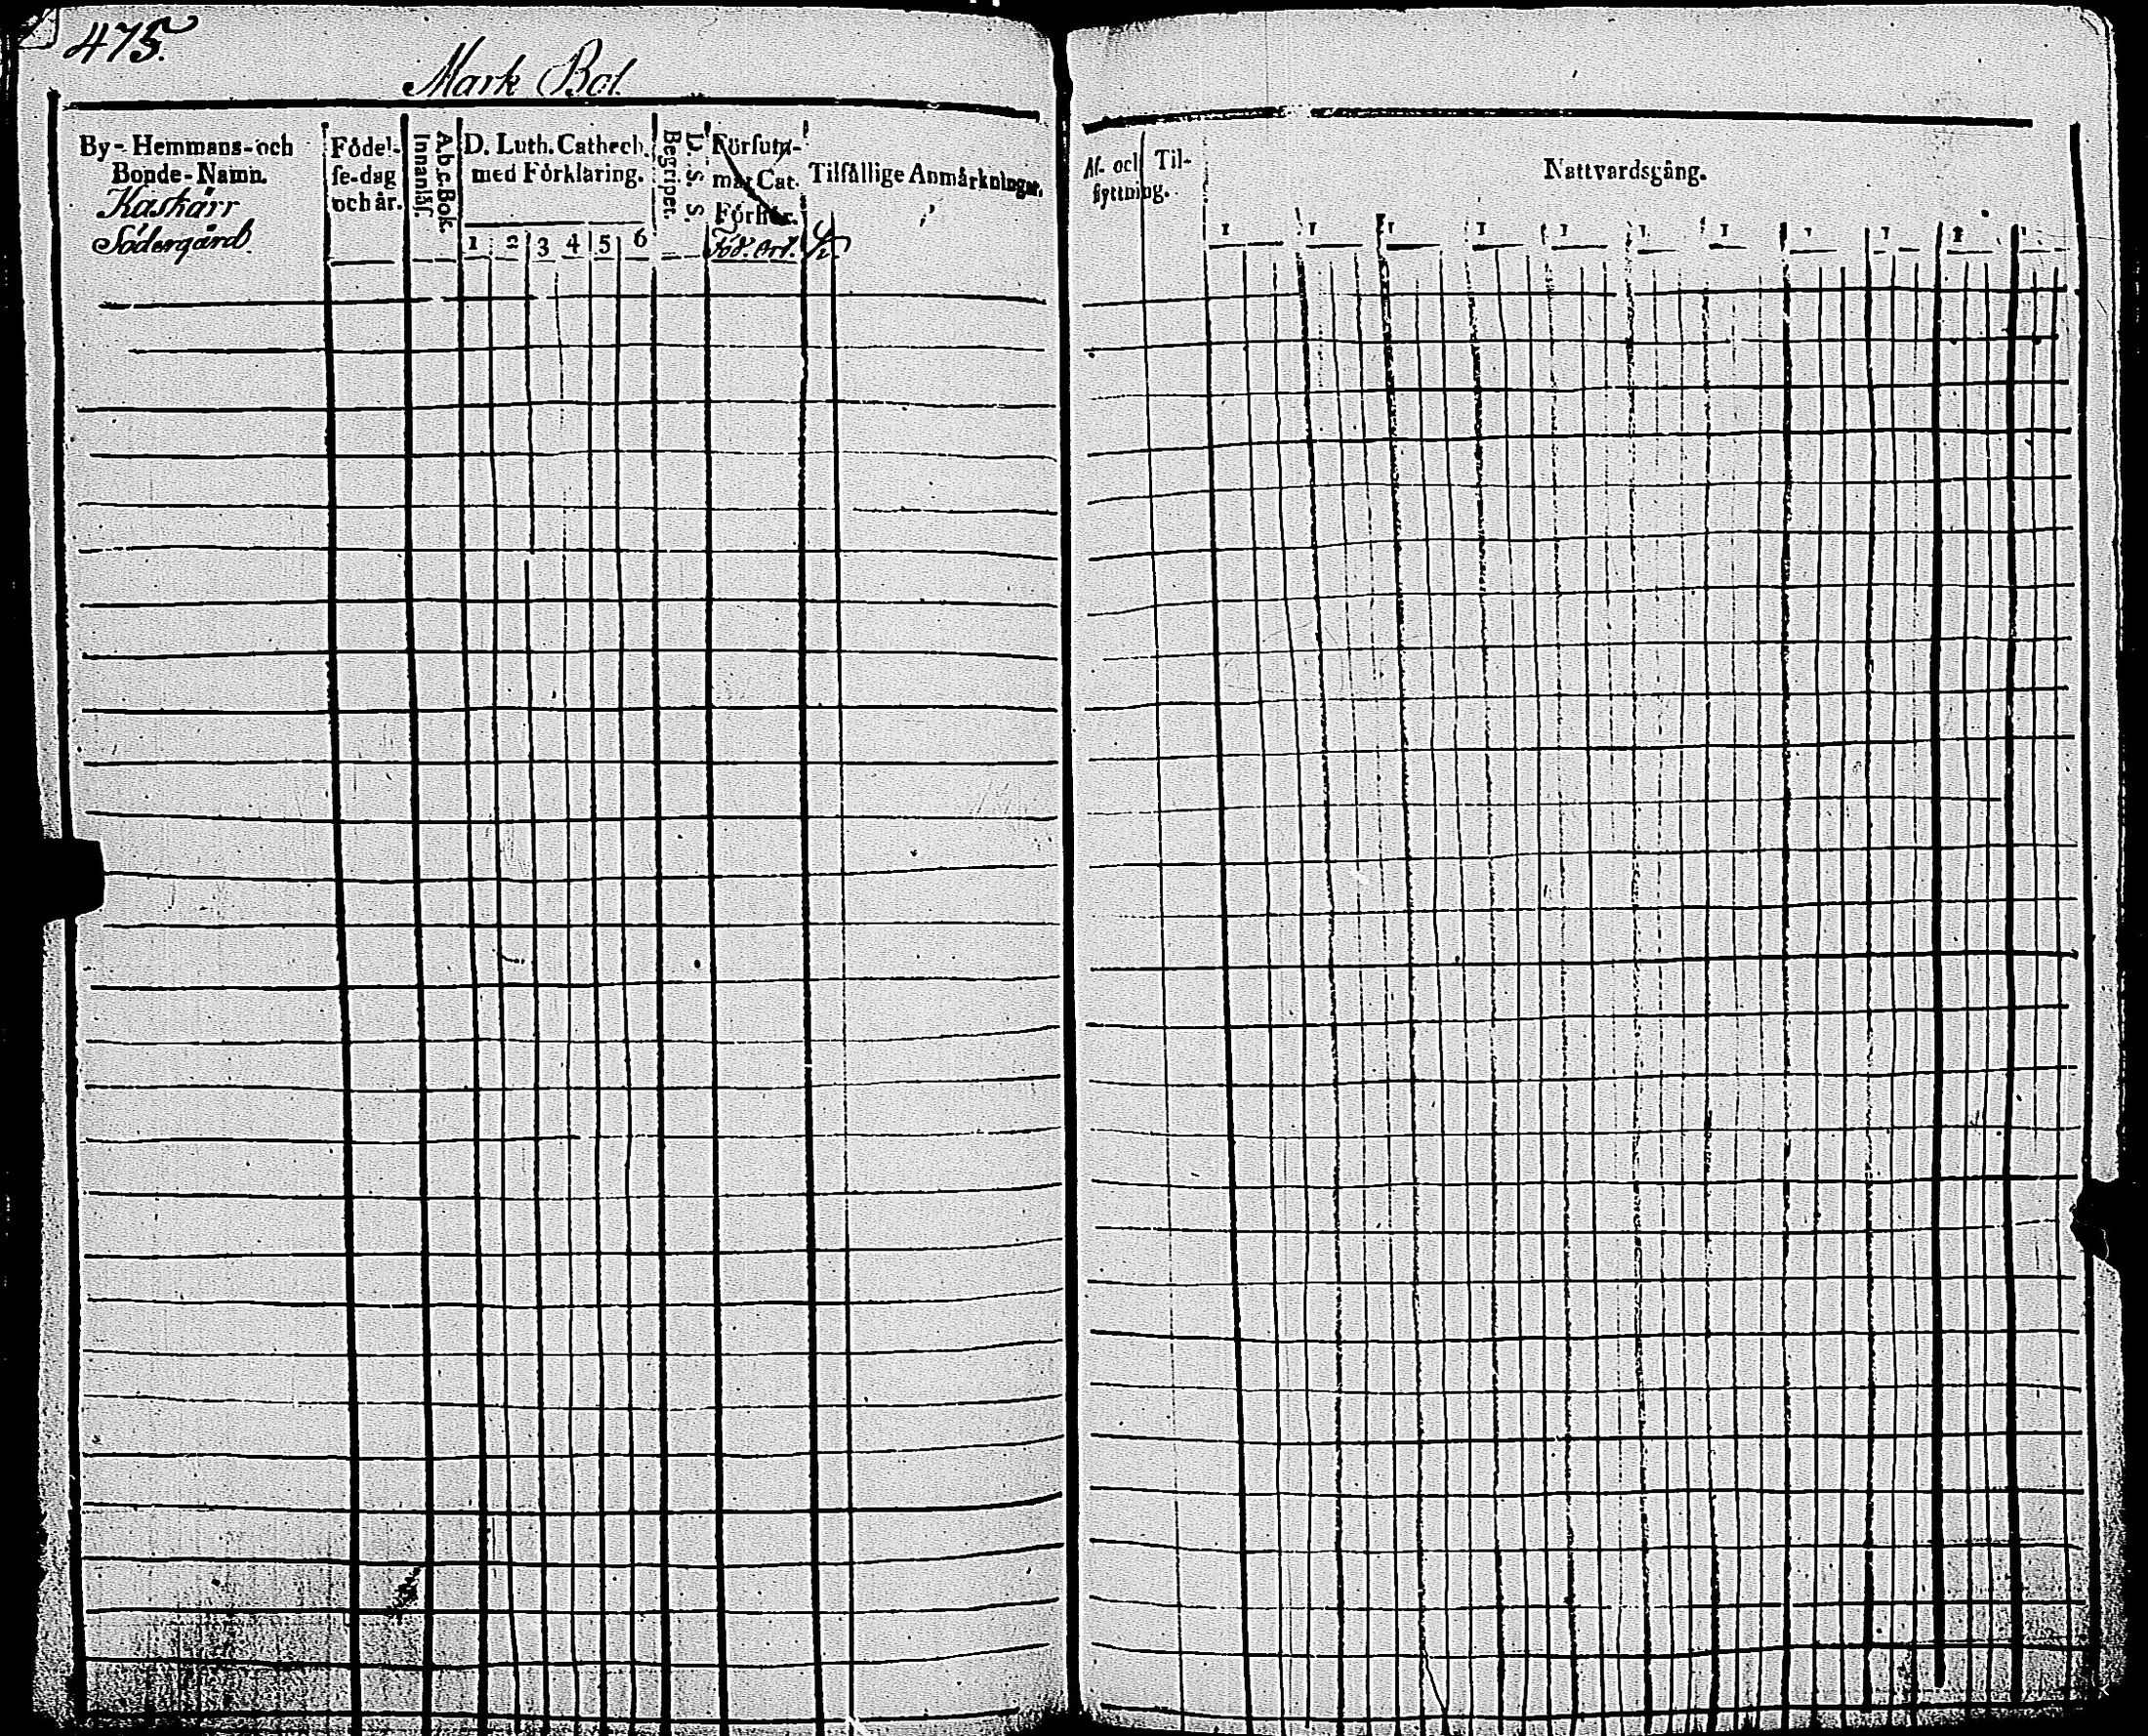 475.
Mark Bol.
By- Hemmans- och
Bonde-Namn.
Kaskärr
Södergård
Födel-
se-dag
och år.
Abc-Bok.
Innanläs.
D. Luth. Cathech.
med Förklaring.
1 2 3 4 5 6
D. S. S.
Begripet.
Försum-
mar Cat.
Förhör.
Föd. Ort.
Tilfällige Anmärkningar.
Af- och Til-
flyttning.
Nattvardsgång.
1 1 1 1 1 1 1 1 1 1 1